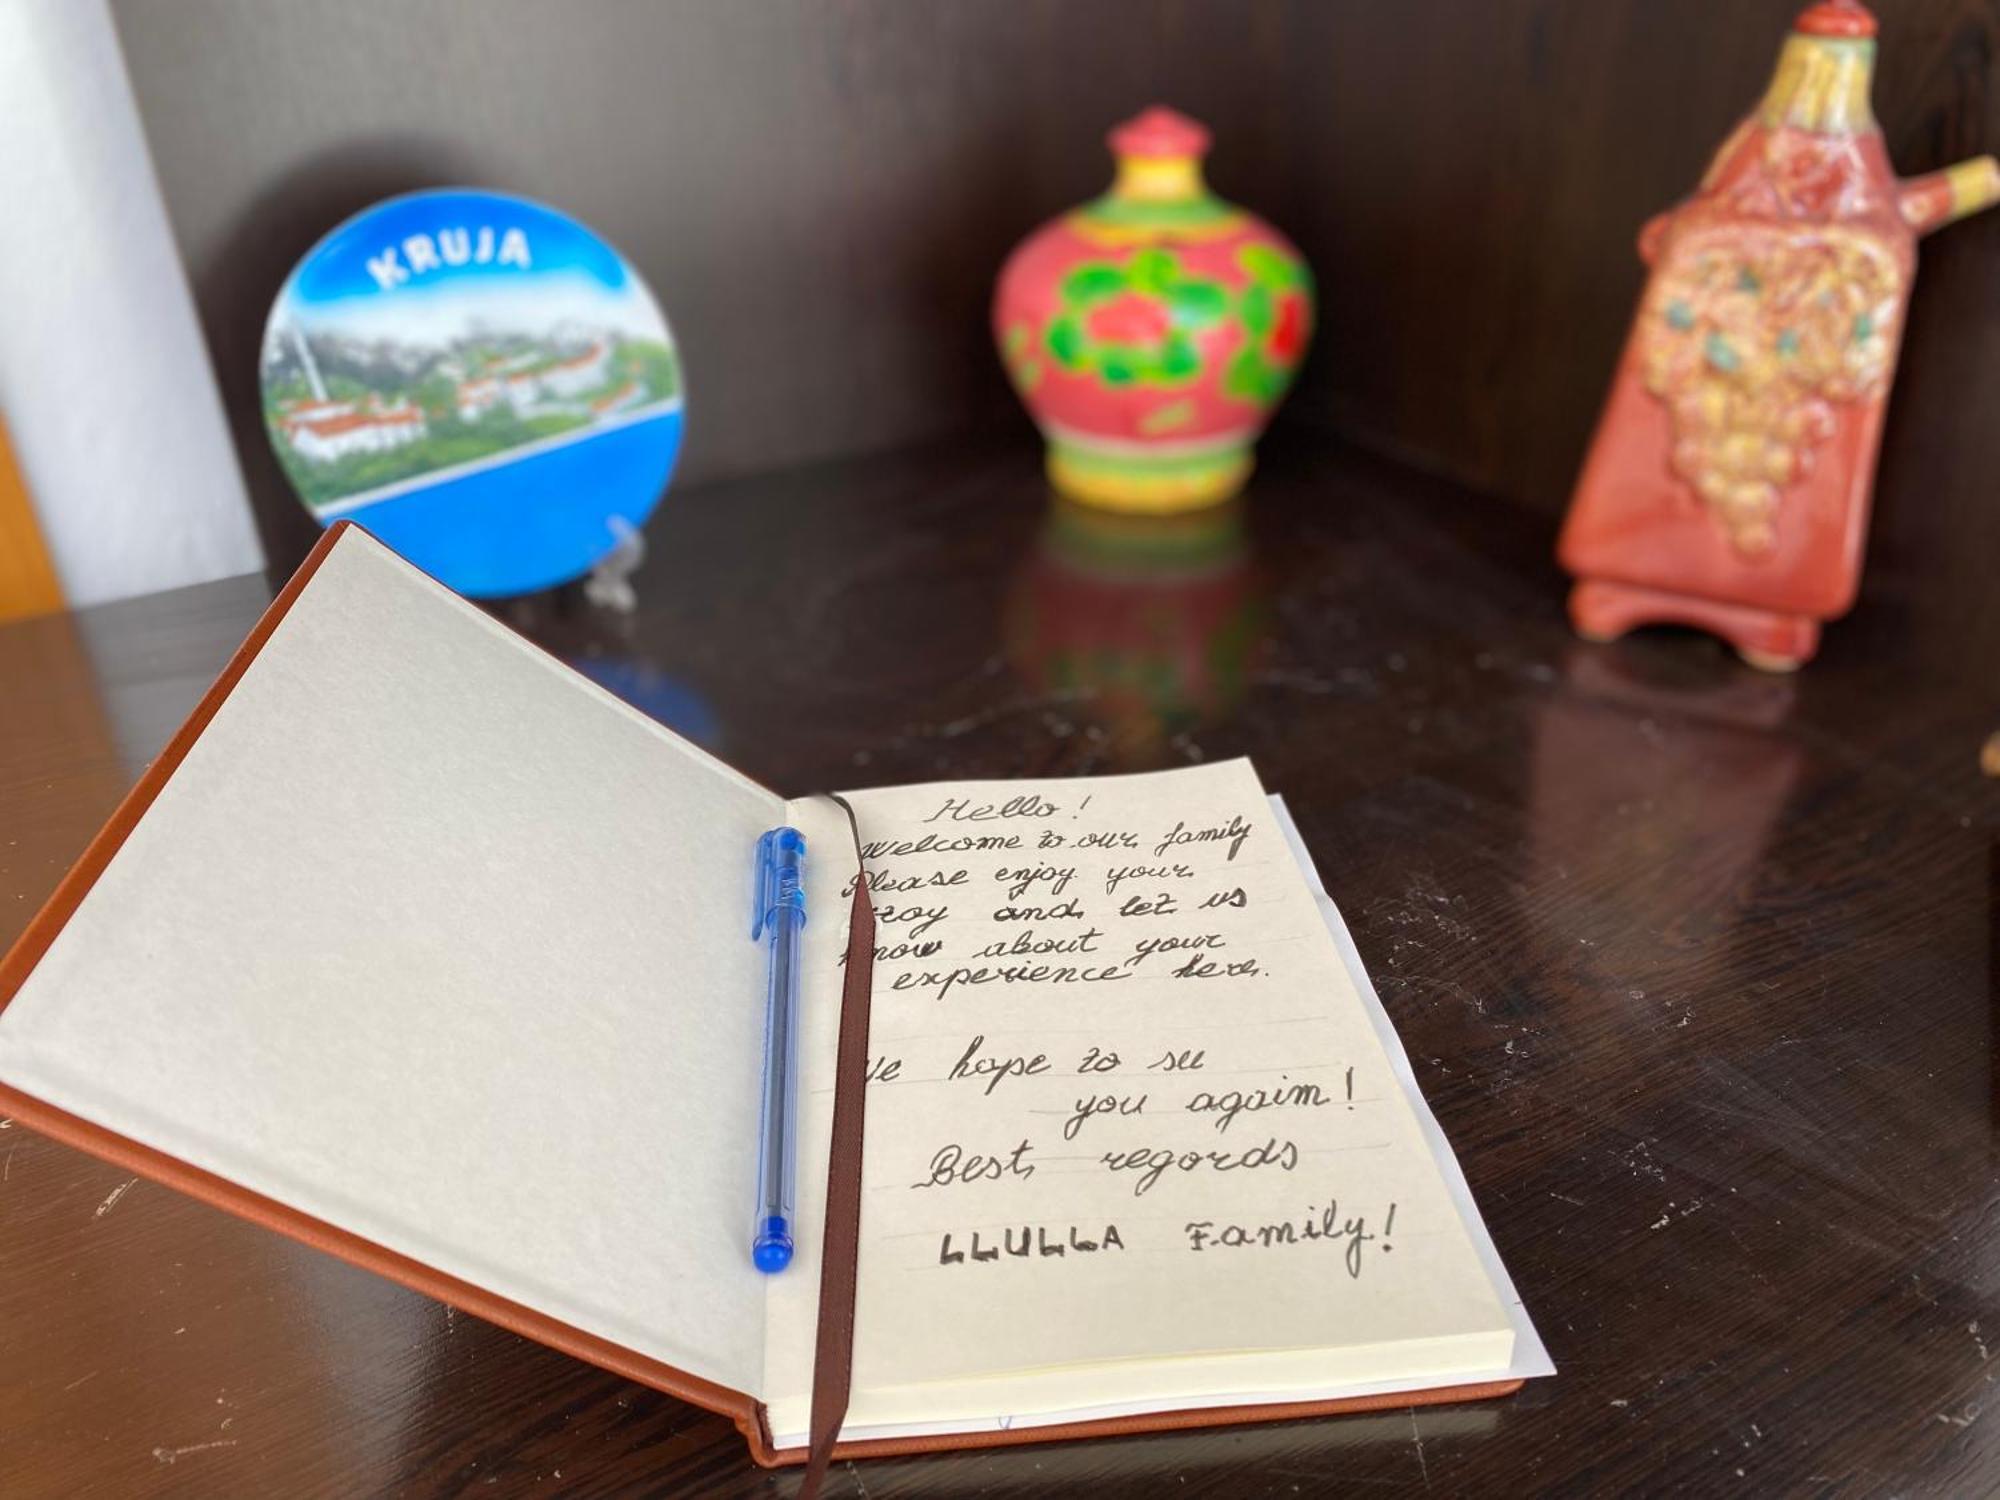 KRUJA
Hello!
Welcome to our family
Please enjoy your
stay and let us
know about your
experience here.
We hope to see
you again!
Best regards
LLULLA Family!